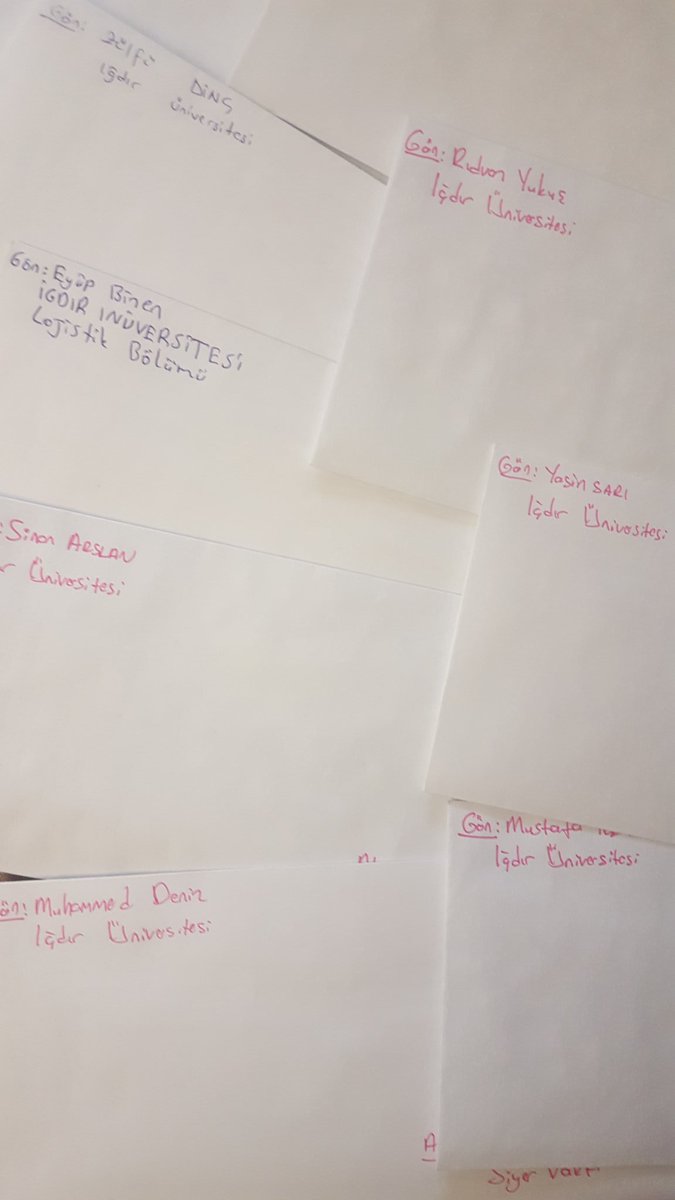 Gön: Zülfü DİNÇ
Iğdır Üniversitesi
Gön: Rıdvan Yukuş
Iğdır Üniversitesi
Gön: Eyüp Binen
İĞDIR INÜVERSİTESİ
Lojistik Bölümü
Gön: Yasin SARI
Iğdır Üniversitesi
: Sinan ARSLAN
r Üniversitesi
Gön: Mustafa
Iğdır Üniversitesi
ön: Muhammed Deniz
Iğdır Üniversitesi
A
Siyer Vakfı